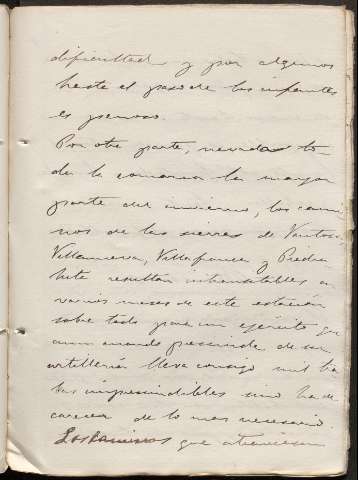 dificultad y por algunos
hasta el paso de los infantes
es penoso.
Por otra parte, nevada to-
da la comarca la mayor
parte del invierno, los cami
nos de las sierras de Ventosa
Villanueva, Villafranca y Piedra
hita resultan intransitables en
varios meses de esta estación
sobre todo para un ejército que
aun cuando prescinda de su
artillería lleva consigo mil ba
tes imprescindibles sino ha de
carecer de lo mas necesario.
Los caminos que atraviesan